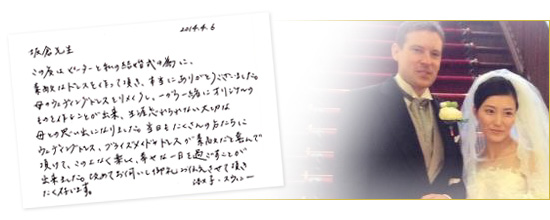 2014.4.6
坂倉先生
この度はピーターと私の結婚式の為に、
素敵なドレスを作って頂き、本当にありがとうございました。
母のウェディングドレスをリメイクし、一から一緒にオリジナルの
ものを作ることが出来、生涯忘れられない大切な
母との思い出になりました。当日もたくさんの方たちに
ウェディングドレス、ブライズメイドドレスが素敵だと喜んで
頂けて、この上なく楽しく、幸せな一日を過ごすことが
出来ました。改めてお伺いし御礼お伝えさせて頂き
たく存じます。